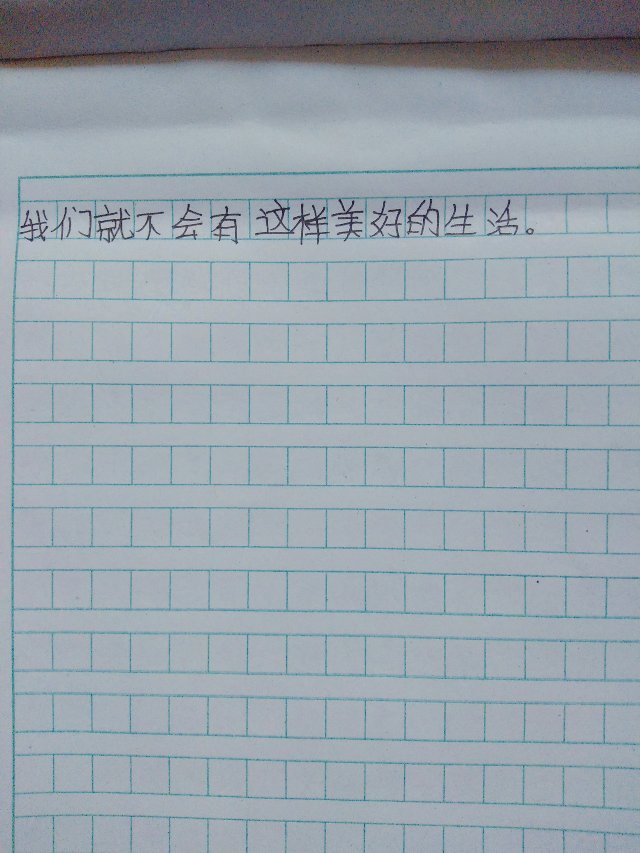 我们就不会有这样美好的生活。